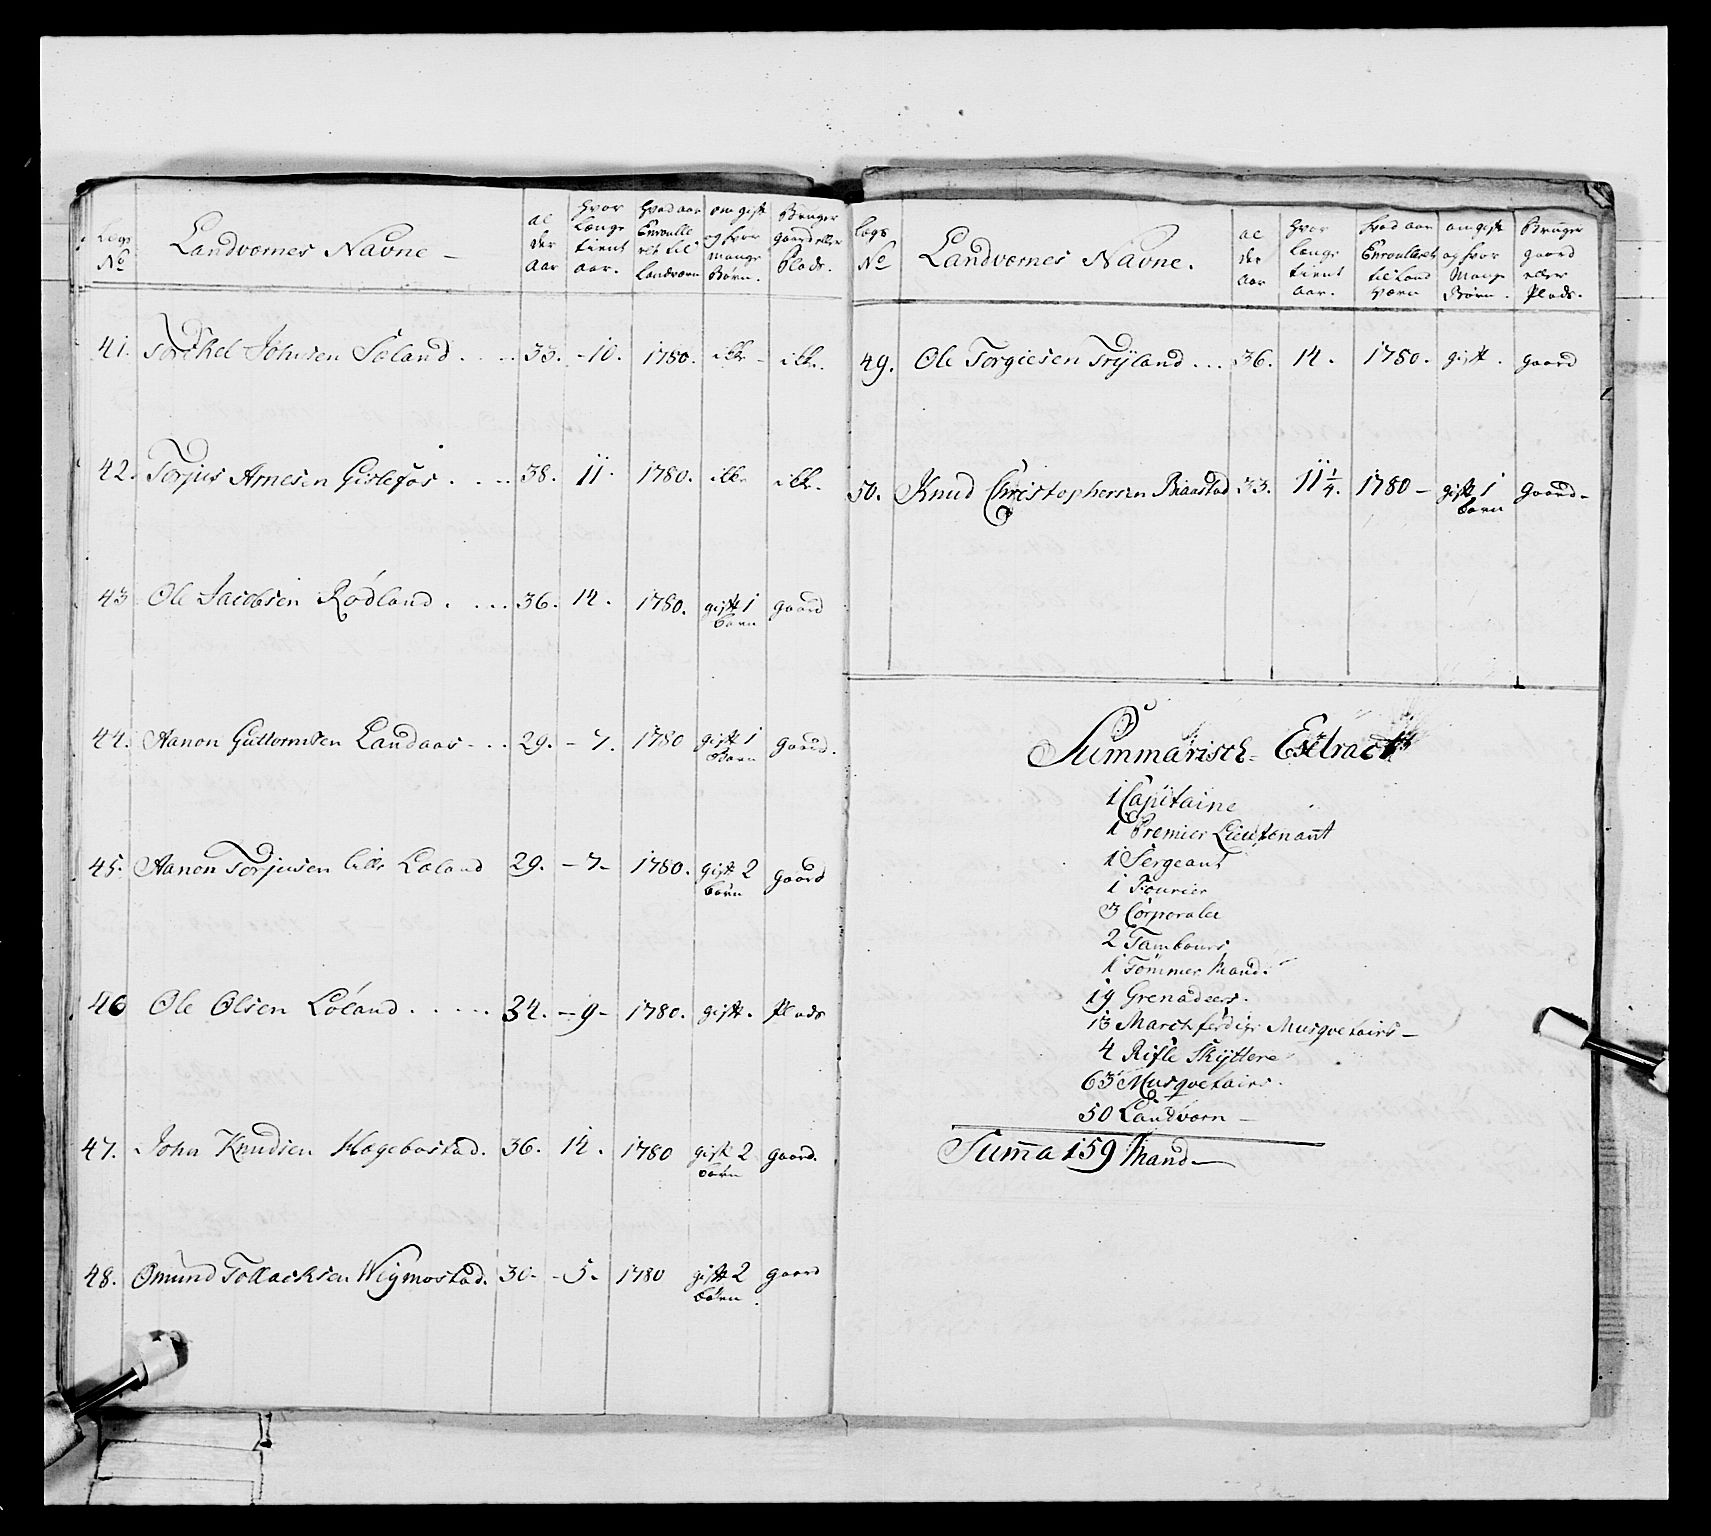 Lægs No
Landværnes Navne
al der Aar
hvor længe tient aar.
hvad aar Enroulleret til Landværn
om gift og hvor mange Børn.
Bruger gaard eller Plads.
41. Torchel Johnsen Sæland. . . . 33. - 10. 1780. ikke - ikke.
42. Torjus Arnesen Gislefos. . . . 38. 11. 1780. ikke ikke.
43 Ole Jacobsen Rødland. . . . 36. 14. 1780. gift 1 barn gaard
44. Aanon Guttormsen Landaas - . . 29. - 7. 1780 gift 1 Barn gaard.
45. Aanon Torjusen lille Læland 29. - 7 - 1780. gift 2 børn gaard
46 Ole Olsen Løland. . . . . 34. - 9 - 1780. gift. Plads
47. John Knudsen Hægebostad. 36. 14. 1780 gift 2 børn gaard.
48. Omund Tollacksen Wigmostad. 30. - 5. 1780 gift 2 børn. gaard
Lægs No
Landværnes Navne.
al der aar
hvor længe tient aar.
hvad aar Enroulleret til Land værn
om gift og hvor Mange Børn.
Bruger gaard eller Plads.
49. Ole Torgiesen Trÿland . . . 36. 14. 1780. gift. gaard
50. Knud Christophersen Biaastad 33. 11 1/4. 1780 - gift 1 barn Gaard -
Summarisch - Extract
1 Capitaine
1 Premier Lieutenant
1 Sergeant
1 Fourier
3 Corporaler
2 Tambours
1 Tømmer Mand.
19 Grenadeers.
13 Marchferdige Musqvetairs -
4 Rifle Skÿttere
63 Musqvetairs.
50 Landværn -
Summa 159 Mand -